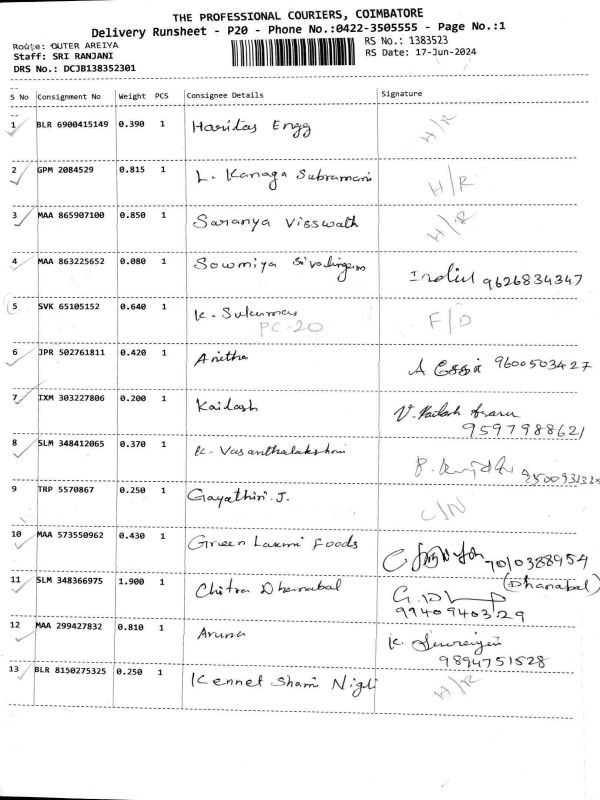 THE PROFESSIONAL COURIERS, COIMBATORE
Delivery Runsheet - P20 - Phone No.:0422-3505555 - Page No.:1
Route: OUTER AREIYA
RS No.: 1383523
Staff: SRI RANJANI
RS Date: 17-Jun-2024
DRS No.: DCJB138352301
S No Consignment No Weight PCS Consignee Details Signature
1 BLR 6900415149 0.390 1 Haritas Engg H/R
2 GPM 2084529 0.815 1 L. Kanaga Subramani H/R
3 MAA 865907100 0.850 1 Saranya Visswath H/R
4 MAA 863225652 0.080 1 Sowmiya Sivalingam 9626834347
5 SVK 65105152 0.640 1 K. Sukumar F/D
PC-20
6 JPR 502761811 0.420 1 Anitha A 9600503427
7 IXM 303227806 0.200 1 Kailash V. Kailash
9597988621
8 SLM 348412065 0.370 1 K. Vasanthalakshmi
9 TRP 5570867 0.250 1 Gayathiri. J. C/N
10 MAA 573550962 0.430 1 Green Laxmi Foods 7010388954
(Dhanabal)
11 SLM 348366975 1.900 1 Chitra Dhanabal
9940940329
12 MAA 299427832 0.810 1 Aruna K.
9894751528
13 BLR 8150275325 0.250 1 Kennet Sham H/R